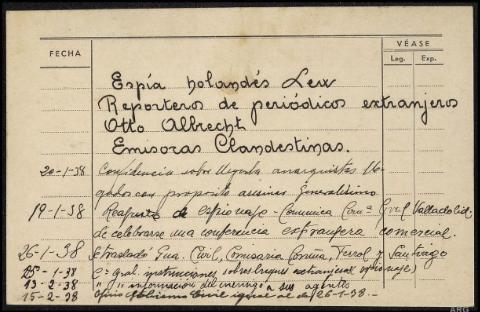 FECHA
VÉASE
Leg. Exp.
Espía holandés Lew
Reporteros de periódicos extranjeros
Otto Albrecht
Emisoras Clandestinas.
20-1-38 Confidencia sobre anarquistas
con proposito asesinar Generalísimo
19-1-38 de espionaje - Comunica Com.ª Civil Valladolid,
de celebrarse una conferencia extranjera comercial.
26-1-38 trasladó Gua. Civil, Comisaria Coruña, Ferrol y Santiago
25-1-38 Cª Gral. instrucciones sobre buques extranjeros espionaje)
13-2-38 " " informacion del enemigo a sus agentes
15-2-38 Gobierno Civil igual al de 26-1-38.-
ARG